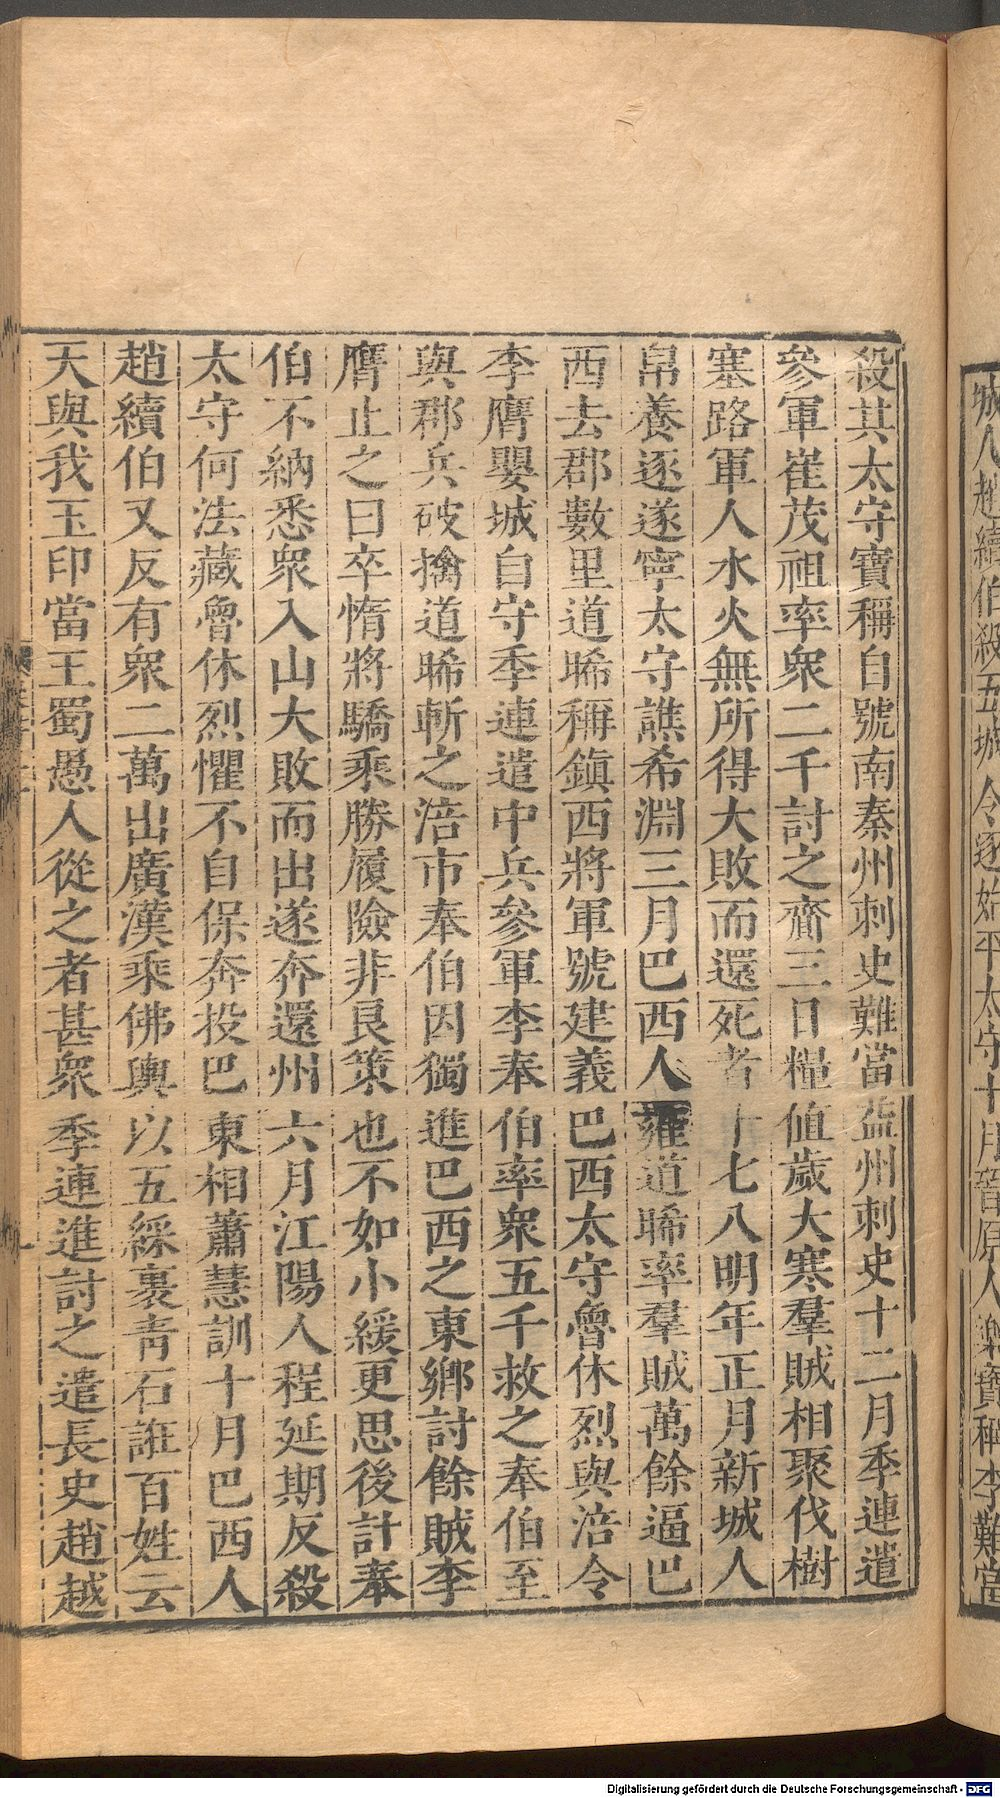 殺其太守寶稱自號南秦州刺史難當益州刺史十二月季連遣
參軍崔茂祖率衆二千討之齎三日糧值歲大寒羣賊相聚伐樹
塞路軍人水火無所得大敗而還死者十七八明年正月新城人
帛養逐遂寧太守譙希淵三月巴西人雍道晞率羣賊萬餘逼巴
西去郡數里道晞稱鎮西將軍號建義巴西太守魯休烈與涪令
李膺嬰城自守季連遣中兵參軍李奉伯率衆五千救之奉伯至
與郡兵破擒道晞斬之涪市奉伯因獨進巴西之東鄉討餘賊李
膺止之曰卒惰將驕乘勝履險非良策也不如小緩更思後計奉
伯不納悉衆入山大敗而出遂奔還州六月江陽人程延期反殺
太守何法藏魯休烈懼不自保奔投巴東相蕭慧訓十月巴西人
趙續伯又反有衆二萬出廣漢乘佛輿以五綵裹青石誑百姓云
天與我玉印當王蜀愚人從之者甚衆季連進討之遣長史趙越
城人趙續伯殺五城令逐始平太守十月晉原人樂寶稱李難當
Digitalisierung gefördert durch die Deutsche Forschungsgemeinschaft - DFG